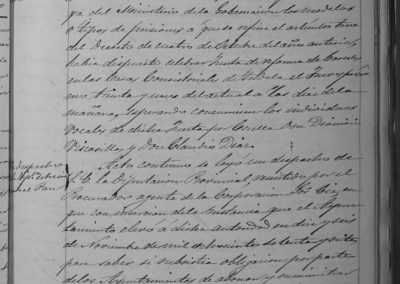 por el Ministerio de la Gobernacion los modelos
o tipos de prisiones a que se refiere el artículo trece
del Decreto de cuatro de Octubre del año anterior,
habia dispuesto celebrar Junta de reforma de Carceles
en las Casas Consistoriales de Tudela el
treinta y uno del actual a las diez de la
mañana, esperando concurriesen los individuos
vocales de dicha Junta por Corella Don Dionisio
Virasillas y Don Claudio Diaz.
Acto continuo se leyó un despacho de
S. E. la Diputacion Provincial, remitido por el
Procurador agente de la Corporacion
que con inclusion de la instancia que el Ayun-
tamiento elevó a dicha autoridad en diez y seis
de Noviembre de mil ochocientos setenta y siete
para saber si subsistia obligacion por parte
de los Ayuntamientos de abonar y suministrar
despacho